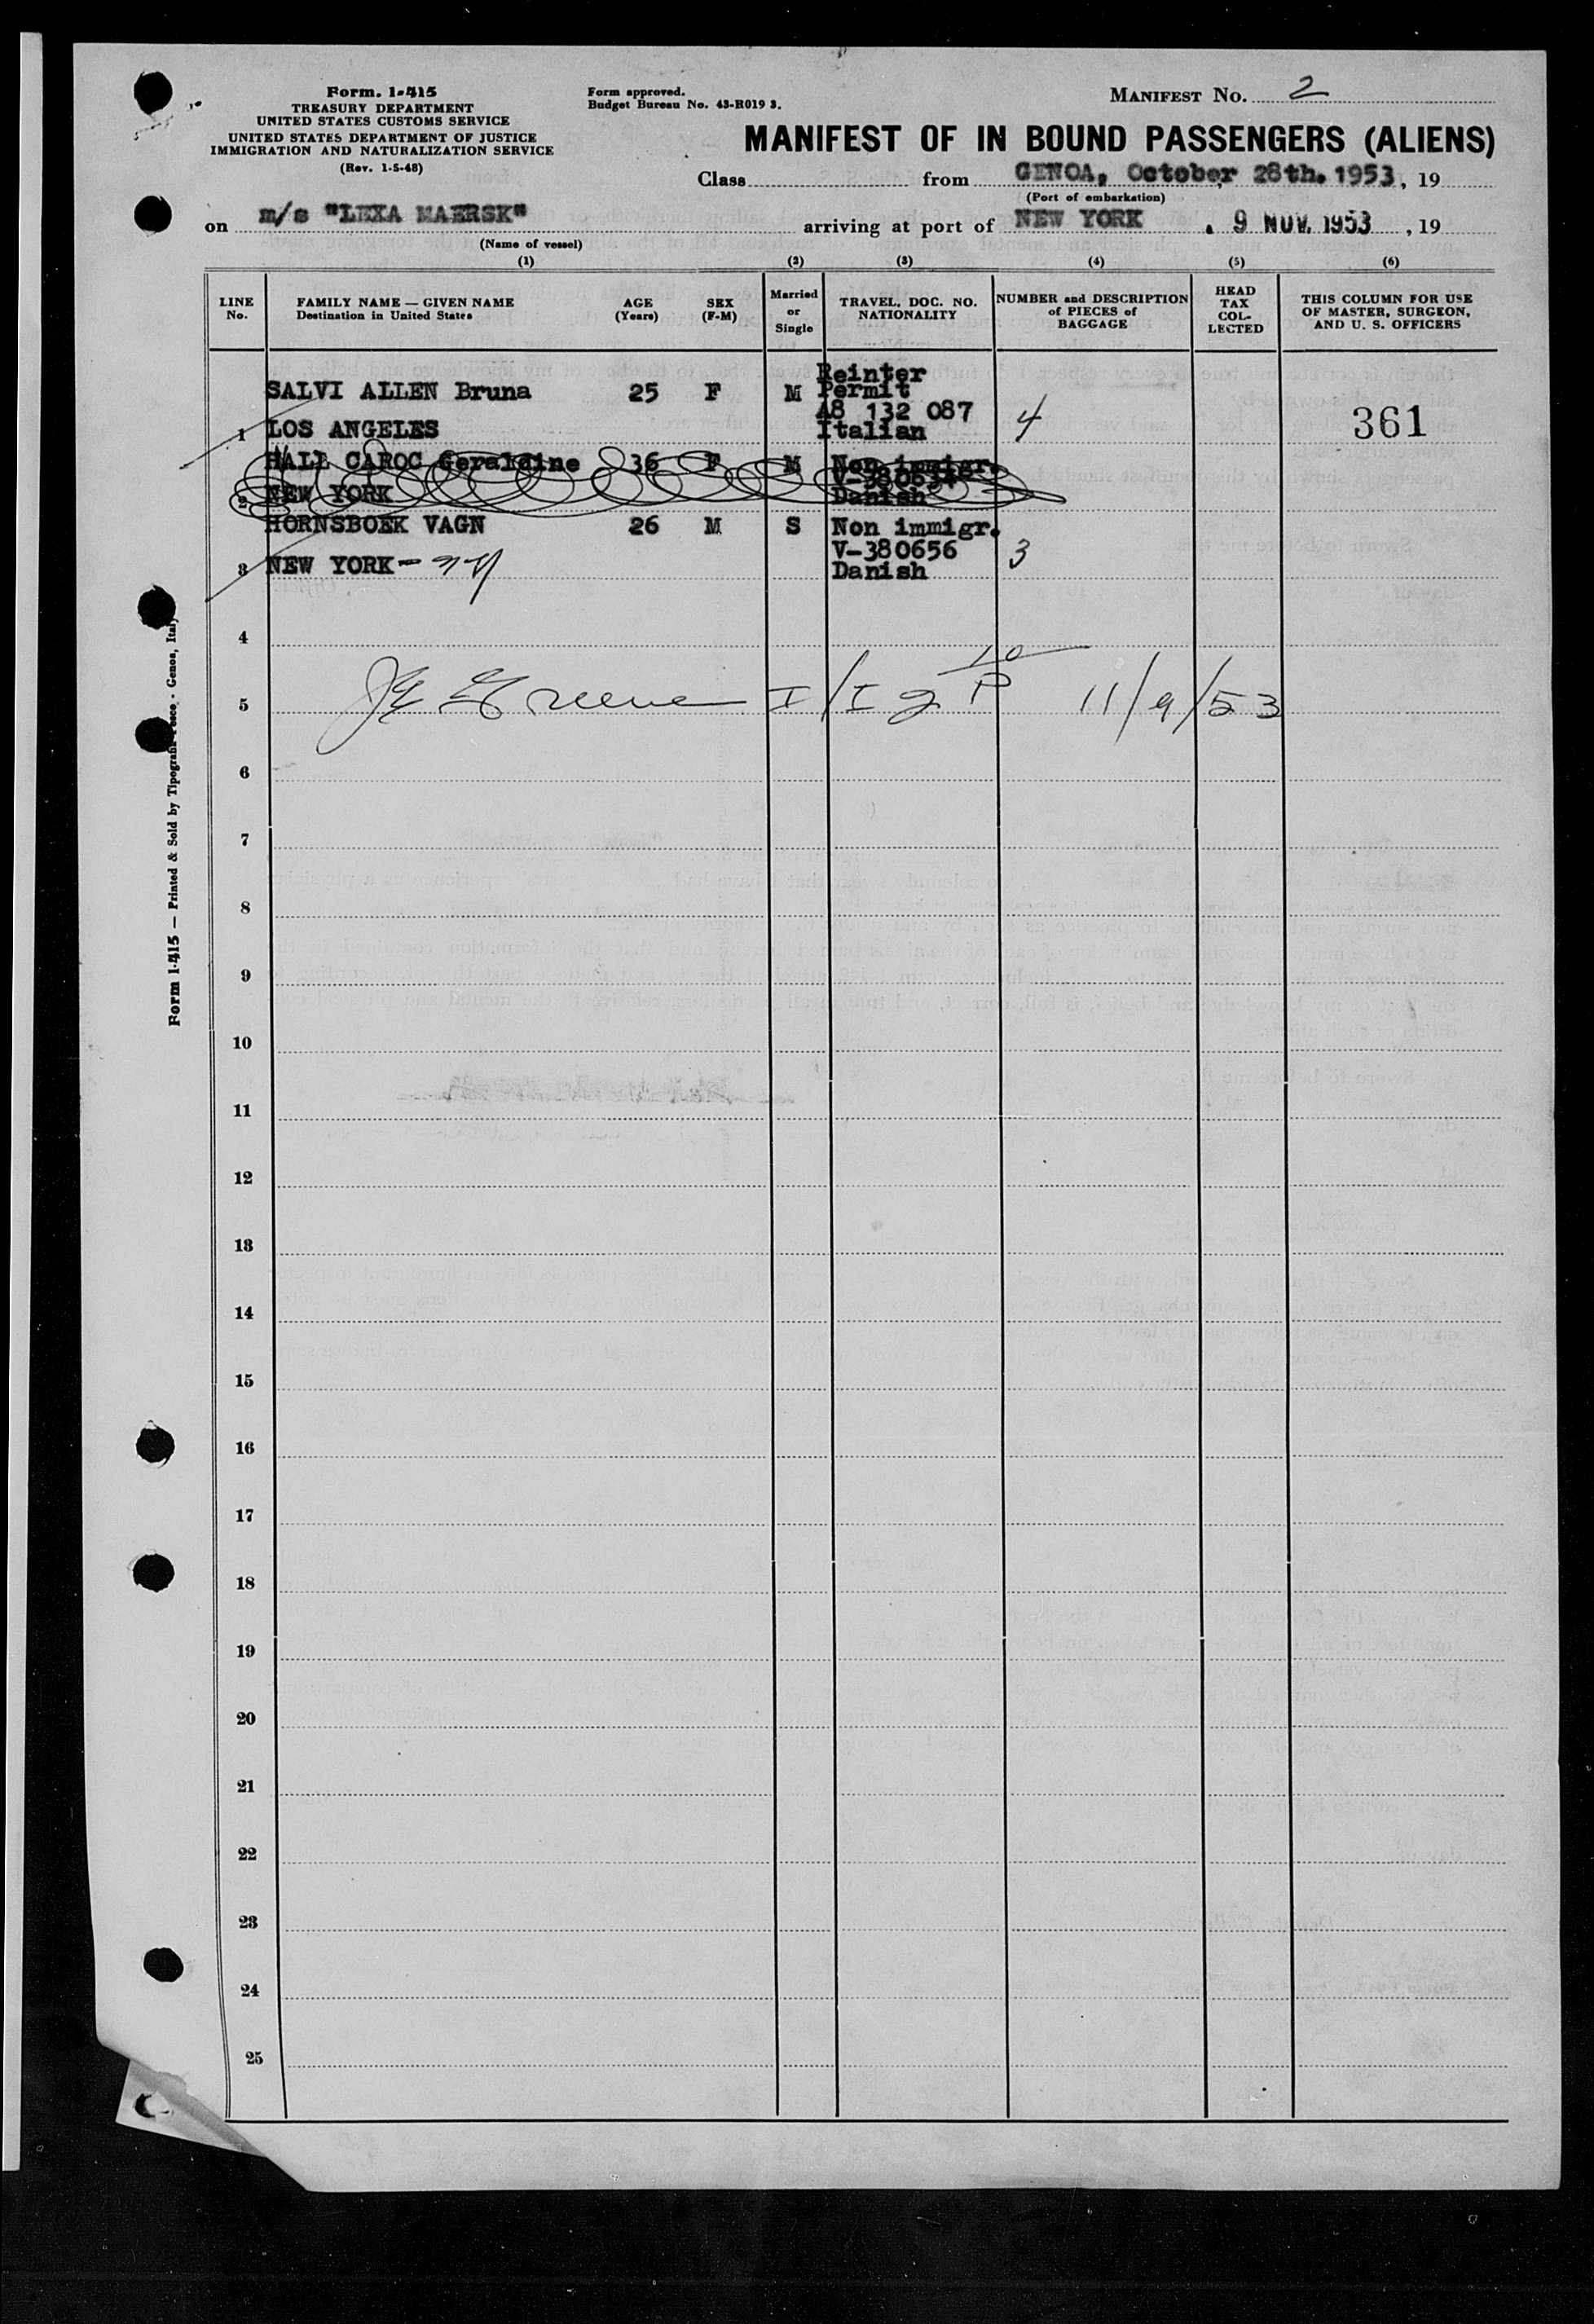 Form. 1-415
TREASURY DEPARTMENT
UNITED STATES CUSTOMS SERVICE
UNITED STATES DEPARTMENT OF JUSTICE
IMMIGRATION AND NATURALIZATION SERVICE
(Rev. 1-5-48)
Form approved.
Budget Bureau No. 43-R019 3.
MANIFEST No. 2
MANIFEST OF IN BOUND PASSENGERS (ALIENS)
Class from GENOA, October 28th. 1953, 19
(Port of embarkation)
on m/s "LEXA MAERSK" arriving at port of NEW YORK . 9 NOV. 1953 , 19
(Name of vessel)
(1) (2) (3) (4) (5) (6)
LINE No.
FAMILY NAME — GIVEN NAME
Destination in United States
AGE (Years)
SEX (F-M)
Married or Single
TRAVEL. DOC. NO. NATIONALITY
NUMBER and DESCRIPTION of PIECES of BAGGAGE
HEAD TAX COL- LECTED
THIS COLUMN FOR USE OF MASTER, SURGEON, AND U. S. OFFICERS
SALVI ALLEN Bruna 25 F M Reinter Permit
A8 132 087 4 361
1 LOS ANGELES Italian
HALL CAROC Geraldine 36 F M Non immigr.
V-380634
2 NEW YORK Danish
HORNSBOEK VAGN 26 M S Non immigr.
V-380656 3
3 NEW YORK - NY Danish
4
5 Greene I/I 2 P 11/9/53
6
7
8
9
10
11
12
13
14
15
16
17
18
19
20
21
22
23
24
25
Form 1-415 — Printed & Sold by Tipografia Pesce - Genoa, Italy